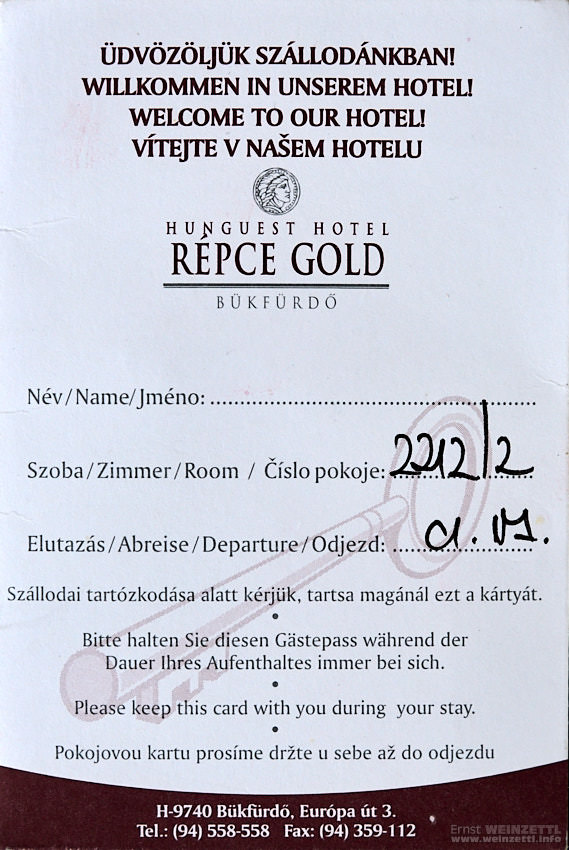 ÜDVÖZÖLJÜK SZÁLLODÁNKBAN!
WILLKOMMEN IN UNSEREM HOTEL!
WELCOME TO OUR HOTEL!
VÍTEJTE V NAŠEM HOTELU
HUNGUEST HOTEL
RÉPCE GOLD
BÜKFÜRDŐ
Név/Name/Jméno: ................................................
Szoba/Zimmer/Room / Číslo pokoje: 2212/2
Elutazás/Abreise/Departure/Odjezd:
Szállodai tartózkodása alatt kérjük, tartsa magánál ezt a kártyát.
•
Bitte halten Sie diesen Gästepass während der
Dauer Ihres Aufenthaltes immer bei sich.
•
Please keep this card with you during your stay.
•
Pokojovou kartu prosíme držte u sebe až do odjezdu
H-9740 Bükfürdő, Európa út 3.
Tel.: (94) 558-558 Fax: (94) 359-112
Ernst WEINZETTL
www.weinzettl.info